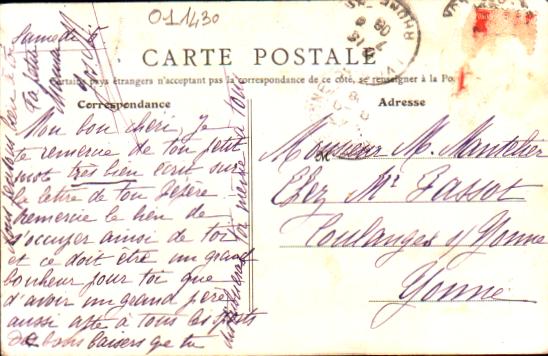 011430
Samedi
CARTE POSTALE
Certains pays étrangers n'acceptant pas la correspondance de ce côté, se renseigner à la Po
Correspondance
Adresse
Mon bon chéri, Je
te remercie de ton petit
mot très bien écrit sur
la lettre de ton
Remercie le bien de
s'occuper ainsi de toi
et ce doit être un grand
bonheur pour toi que
d'avoir un grand père
aussi apte à tous les sports
bons baisers que tu
toi même à tous
Monsieur M. Mantelier
Chez Mr Jassot
Coulanges s/ Yonne
Yonne
RHONE